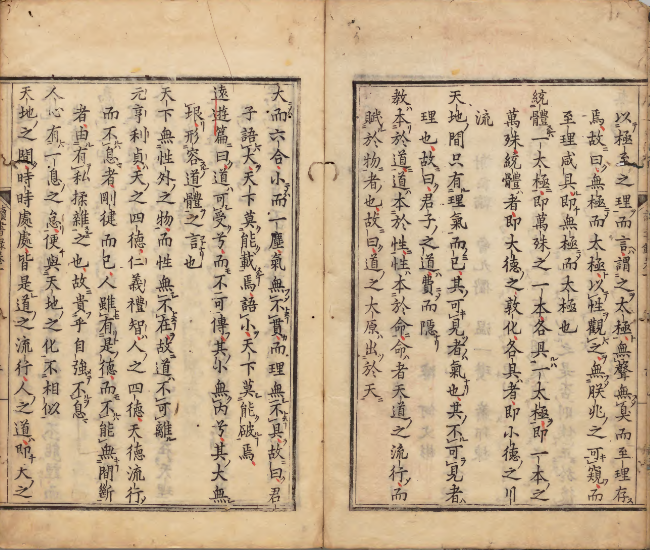 以極至之理而言謂之太極無聲無臭而至理存
焉故曰無極而太極以性觀之無朕兆之可窺而
至理咸具即無極而太極也
統體一太極即萬殊之一本各具一太極即一本之
萬殊統體者即大德之敦化各具者即小德之川
流
天地間只有理氣而已其可見者氣也其不可見者
理也故曰君子之道費而隱
教本於道道本於性性本於命命者天道之流行而
賦於物者也故曰道之大原出於天
大而六合小而一塵氣無不貫而理無不具故曰君
子語大天下莫能載焉語小天下莫能破焉
遠遊篇曰道可受兮而不可傳其小無內兮其大無
垠形容道體之言也
天下無性外之物而性無不在故道不可離
元亨利貞天之四德仁義禮智人之四德天德流行
而不息者剛健而已人雖有是德而不能無間斷
者由有私揉雜之也故貴乎自強不息
人心有一息之怠便與天地之化不相似
天地之間時時處處皆是道之流行人之道即天之